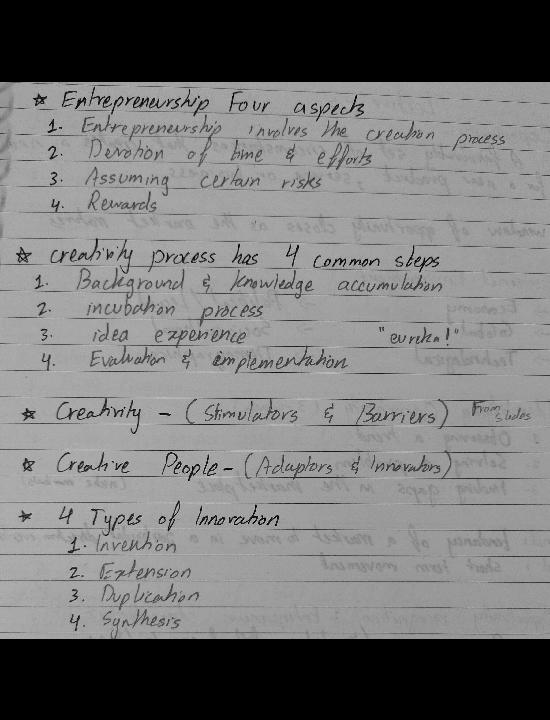 * Entrepreneurship Four aspects
1. Entrepreneurship involves the creation process
2. Devotion of time & efforts
3. Assuming certain risks
4. Rewards
* creativity process has 4 common steps
1. Background & knowledge accumulation
2. incubation process
3. idea experience "eureka!"
4. Evaluation & implementation
* Creativity - (Stimulators & Barriers) From slides
* Creative People - (Adaptors & Innovators)
* 4 Types of Innovation
1. Invention
2. Extension
3. Duplication
4. Synthesis